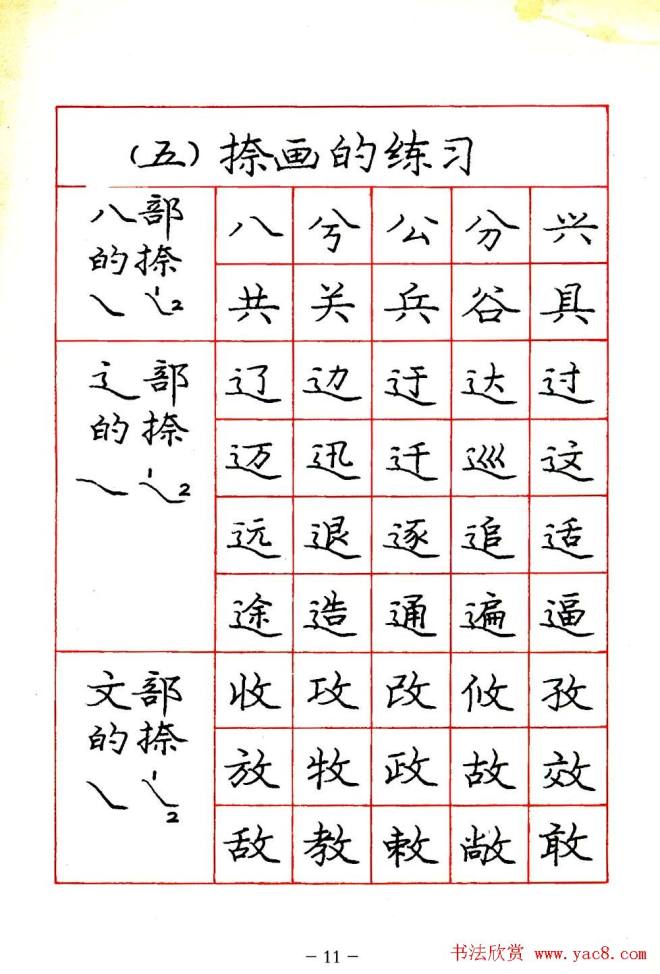 （五）捺画的练习
八部
的捺
1 2
八 兮 公 分 兴
共 关 兵 谷 具
辶部
的捺
1 2
辽 边 迂 达 过
迈 迅 迁 巡 这
远 退 逐 追 适
途 造 通 遍 逼
文部
的捺
1 2
收 攻 改 攸 孜
放 牧 政 故 效
敌 教 敕 敞 敢
- 11 -
书法欣赏 www.yac8.com